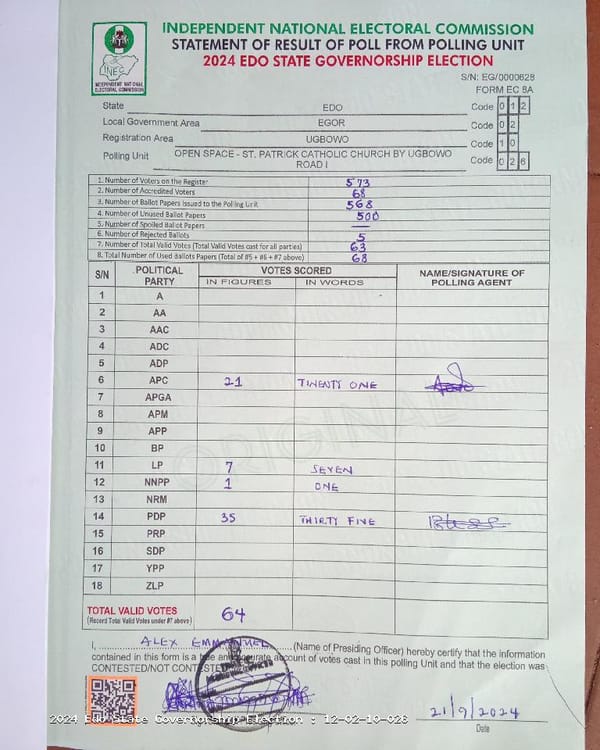 INDEPENDENT NATIONAL ELECTORAL COMMISSION
STATEMENT OF RESULT OF POLL FROM POLLING UNIT
2024 EDO STATE GOVERNORSHIP ELECTION
INEC
INDEPENDENT NATIONAL
ELECTORAL COMMISSION
S/N: EG/0000628
FORM EC 8A
State EDO Code 0 1 2
Local Government Area EGOR Code 0 2
Registration Area UGBOWO Code 1 0
Polling Unit OPEN SPACE - ST. PATRICK CATHOLIC CHURCH BY UGBOWO ROAD I Code 0 2 8
1. Number of Voters on the Register 573
2. Number of Accredited Voters 68
3. Number of Ballot Papers Issued to the Polling Unit 568
4. Number of Unused Ballot Papers 500
5. Number of Spoiled Ballot Papers —
6. Number of Rejected Ballots 5
7. Number of Total Valid Votes (Total Valid Votes cast for all parties) 63
8. Total Number of Used Ballots Papers (Total of #5 + #6 + #7 above) 68
S/N POLITICAL PARTY VOTES SCORED NAME/SIGNATURE OF POLLING AGENT
IN FIGURES IN WORDS
1 A
2 AA
3 AAC
4 ADC
5 ADP
6 APC 21 TWENTY ONE
7 APGA
8 APM
9 APP
10 BP
11 LP 7 SEVEN
12 NNPP 1 ONE
13 NRM
14 PDP 35 THIRTY FIVE
15 PRP
16 SDP
17 YPP
18 ZLP
ORIGINAL
TOTAL VALID VOTES 64
(Record Total Valid Votes under #7 above)
I, ALEX EMMANUEL (Name of Presiding Officer) hereby certify that the information
contained in this form is a true and accurate account of votes cast in this polling Unit and that the election was
CONTESTED/NOT CONTESTED
21/9/2024
Date
2024 Edo State Governorship Election : 12-02-10-028